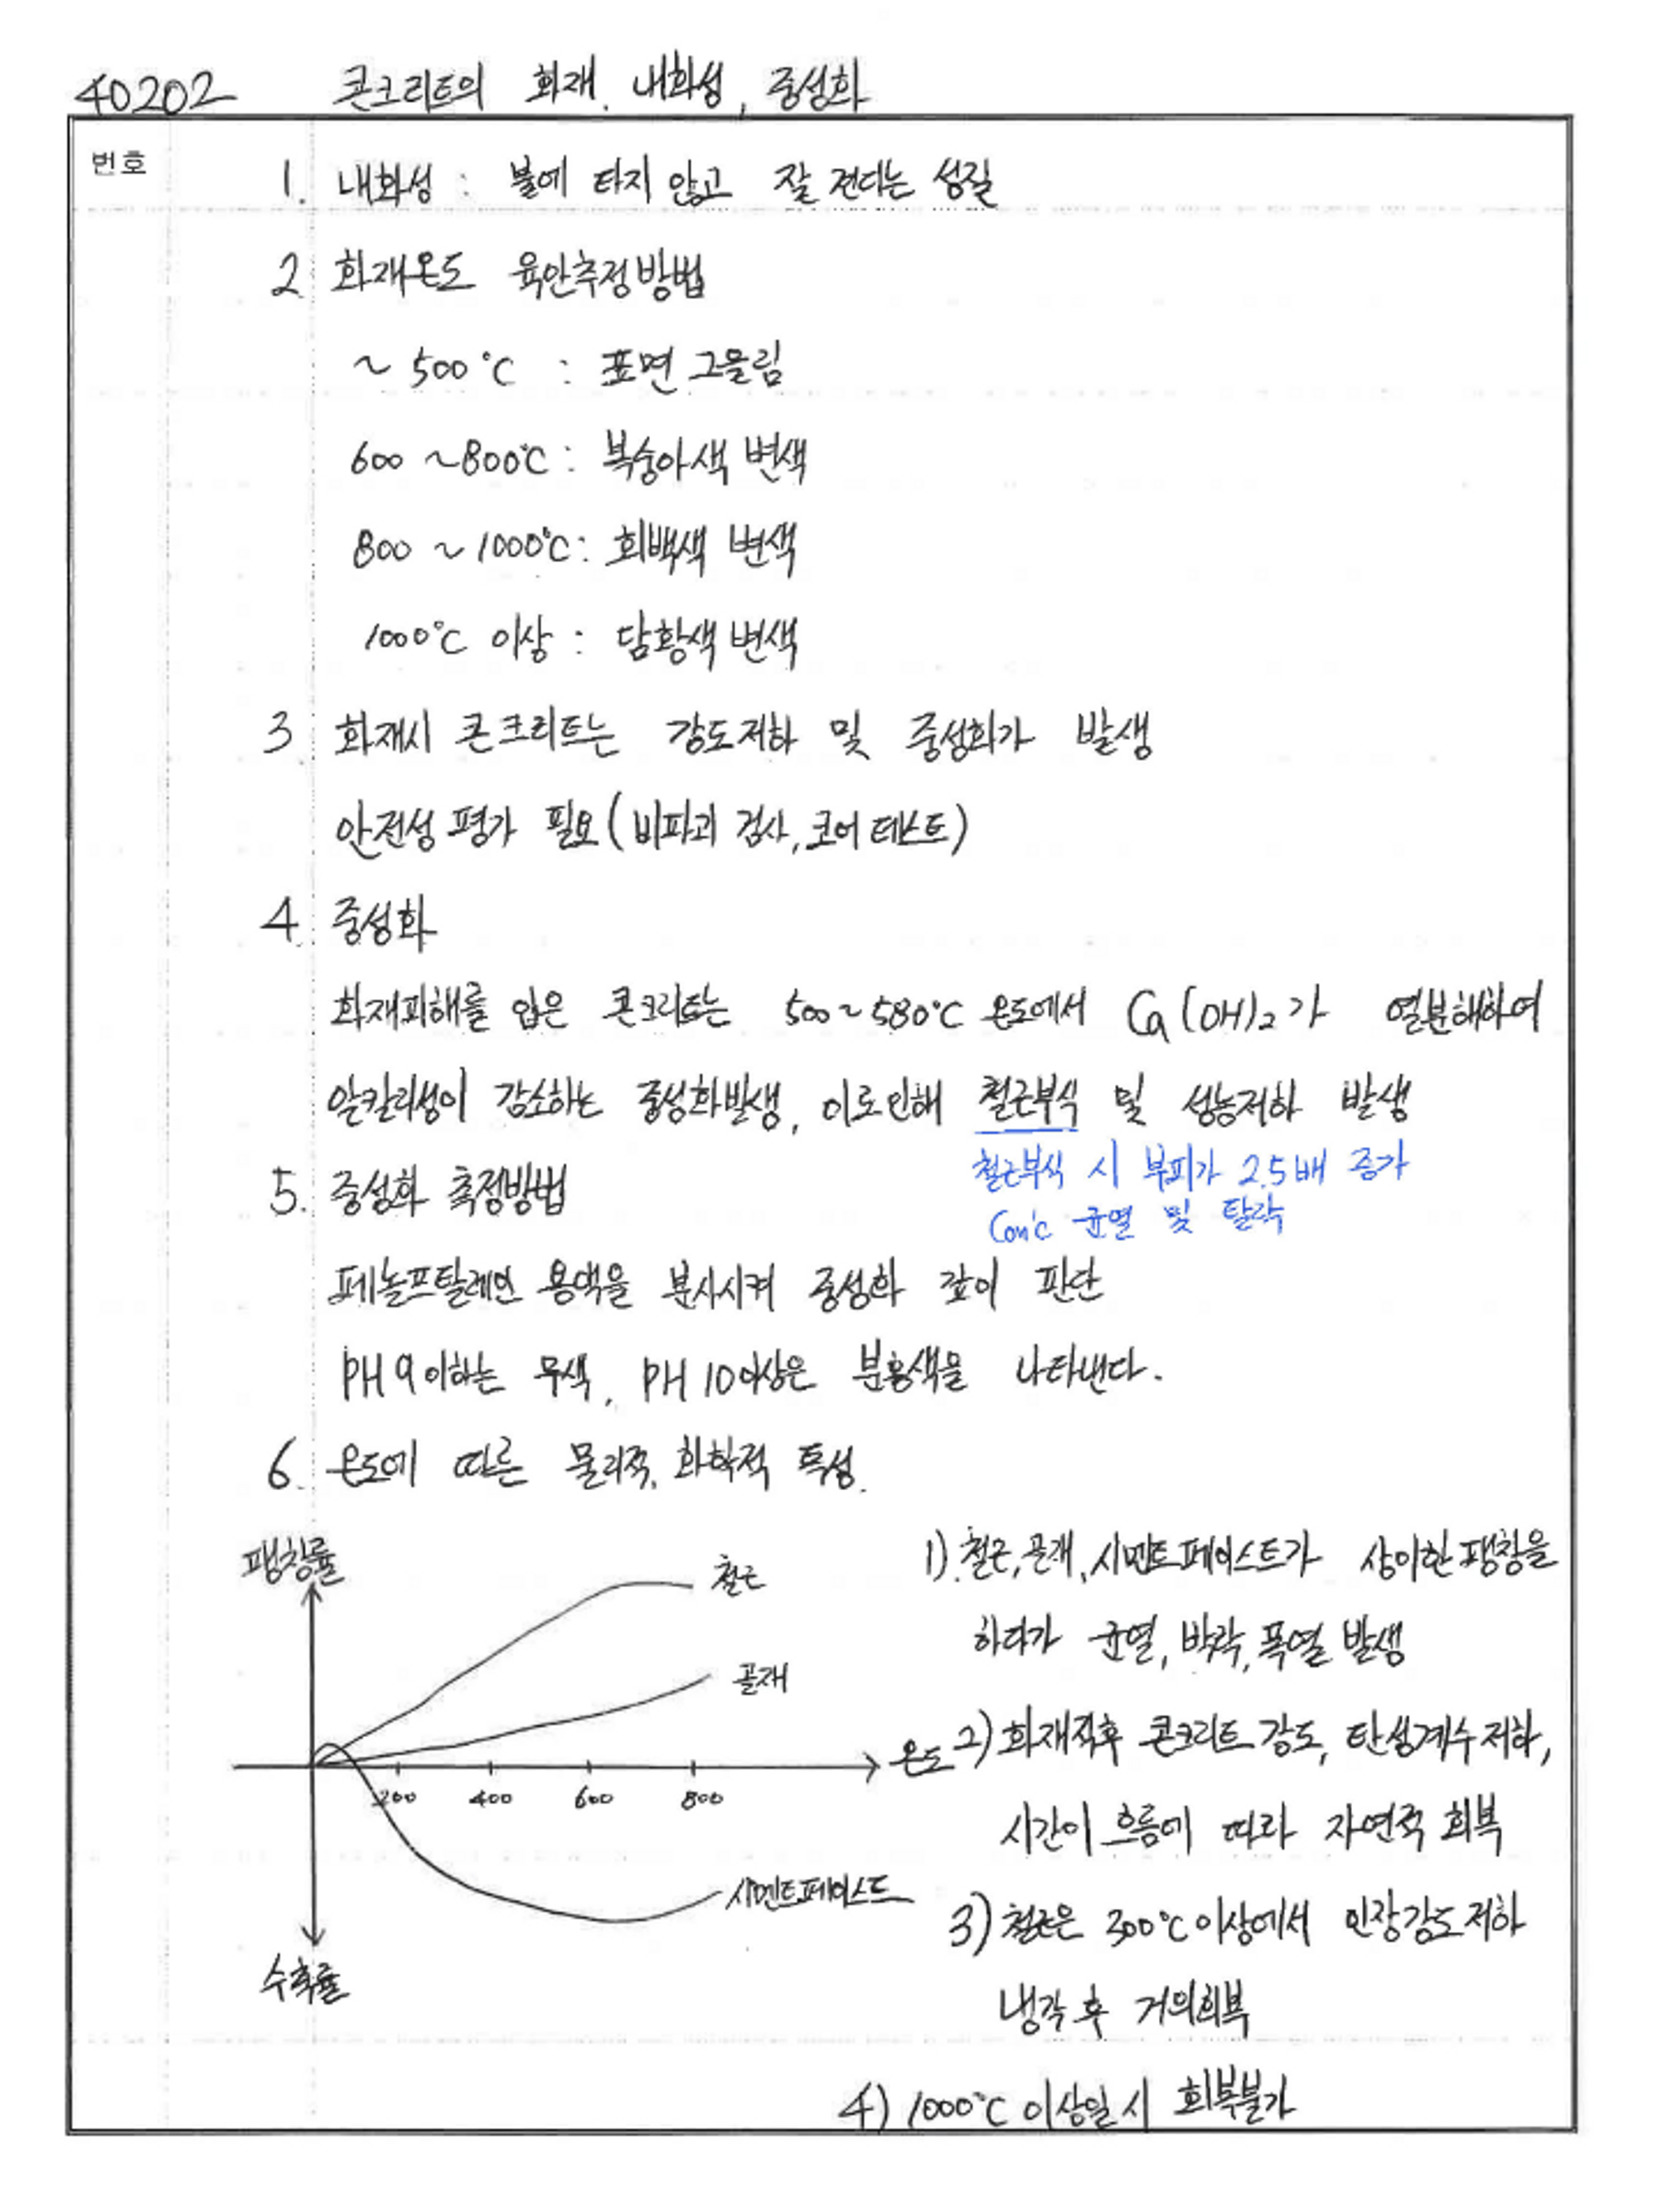 40202 콘크리트의 화재, 내화성, 중성화
번호
1. 내화성 : 불에 타지 않고 잘 견디는 성질
2. 화재온도 육안추정방법
~ 500℃ : 표면 그을림
600 ~800℃ : 복숭아색 변색
800 ~ 1000℃ : 회백색 변색
1000℃ 이상 : 담황색 변색
3. 화재시 콘크리트는 강도저하 및 중성화가 발생
안전성 평가 필요 (비파괴 검사, 코어 테스트)
4. 중성화
화재피해를 입은 콘크리트는 500~580℃ 온도에서 Ca(OH)2가 열분해하여
알칼리성이 감소하는 중성화발생, 이로인해 철근부식 및 성능저하 발생
철근부식 시 부피가 2.5배 증가
Con'c 균열 및 탈락
5. 중성화 측정방법
페놀프탈레인 용액을 분사시켜 중성화 깊이 판단
PH 9이하는 무색, PH 10이상은 분홍색을 나타낸다.
6. 온도에 따른 물리적, 화학적 특성.
팽창률
철근
골재
온도
200 400 600 800
시멘트페이스트
수축률
1). 철근, 골재, 시멘트페이스트가 상이한 팽창을
하다가 균열, 박락, 폭열 발생
2) 화재직후 콘크리트 강도, 탄성계수 저하,
시간이 흐름에 따라 자연적 회복
3) 철근은 300℃ 이상에서 인장강도 저하
냉각 후 거의회복
4) 1000℃ 이상일 시 회복불가